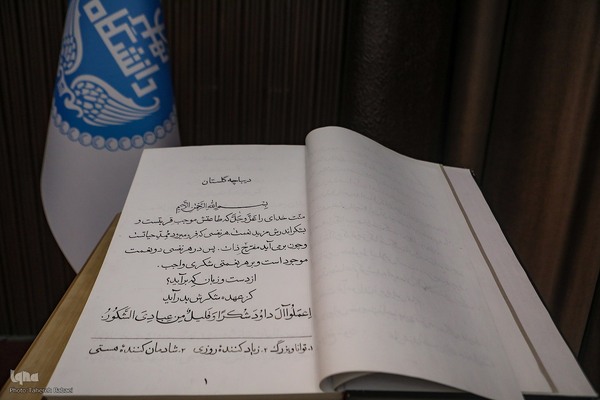 دانشگاه
دیباچه گلستان
بسم الله الرحمن الرحیم
منّت خدای را عزّ و جلّ که طاعتش موجب قربتست و
بشکر اندرش مزید نعمت هر نفسی که فرو میرود ممدّ حیاتست
و چون برمی آید مفرّح ذات. پس در هر نفسی دو نعمت
موجود است و بر هر نعمتی شکری واجب.
از دست و زبان که برآید؟
کز عهده شکرش بدرآید
اِعمَلوا آلَ داوُدَ شُکراً وَ قَلیلٌ مِن عِبادیَ الشَّکُورُ.
۱. توانا و بزرگ ۲. زیاد کننده روزی ۳. شادمان کننده هستی
۱
iqna
Photo: Tahereh Babaei